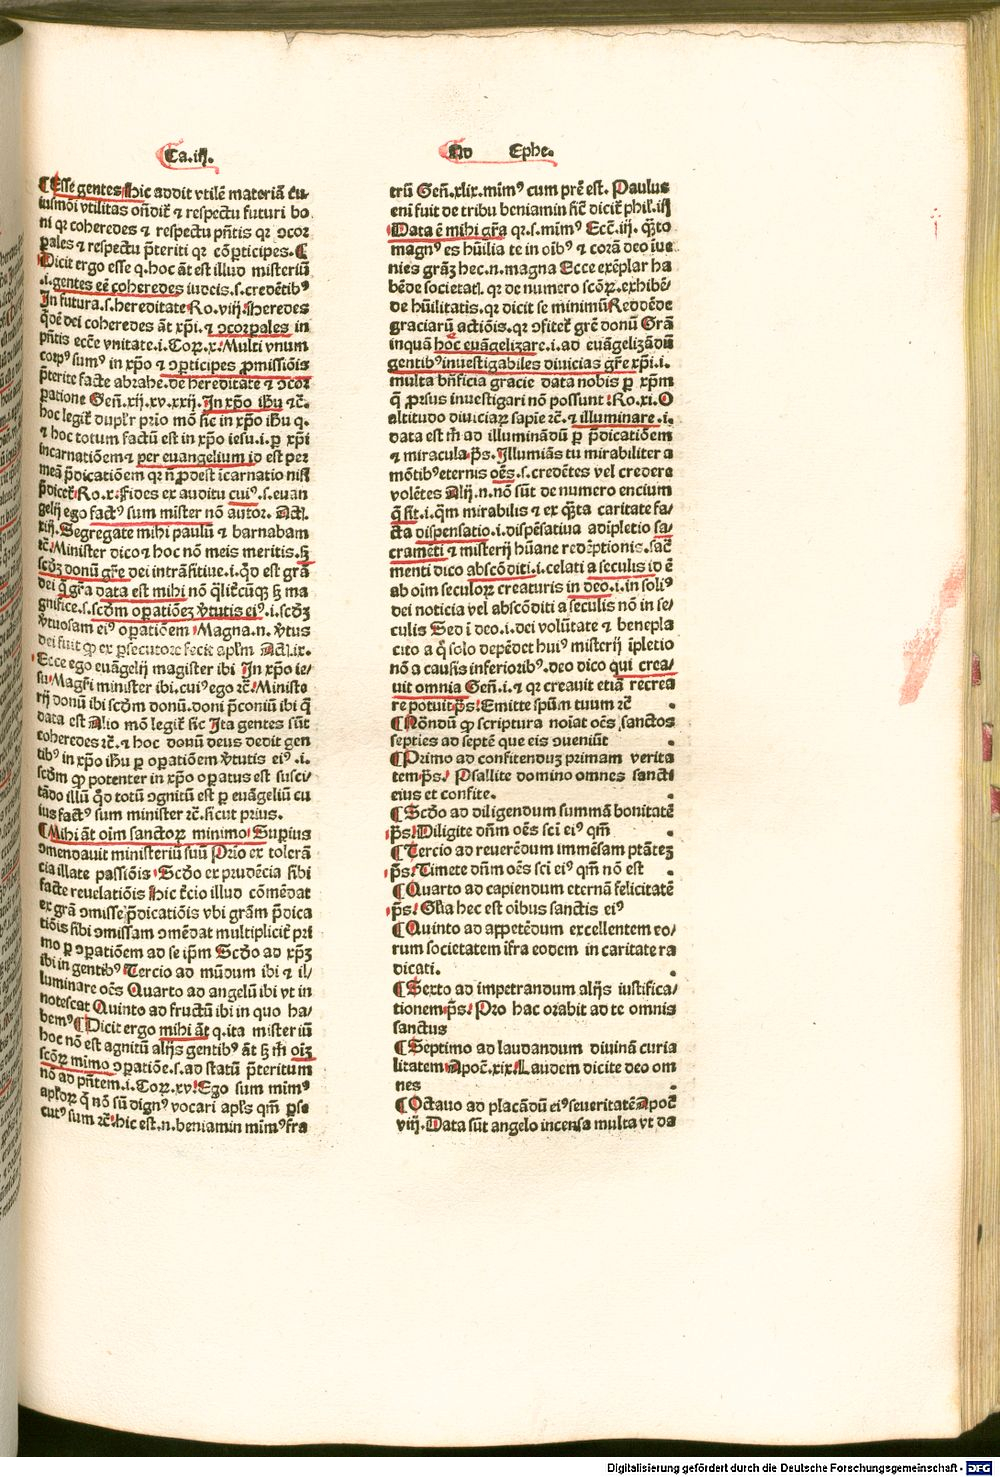 Ca.iij.
Ad Ephe.
¶Esse gentes hic addit vtilē materiā cu⸗
iusmōi vtilitas oñdit᷑ ⁊ respectu futuri bo
ni qꝛ coheredes ⁊ respectu pñtis qꝛ ↄcoꝛ
pales ⁊ respectu p̄teriti qꝛ cōꝑticipes.¶
Dicit ergo esse q. hoc āt est illud misteriū
.i.gentes eē coheredes iudeis.s.credētibꝰ
In futura.s.hereditate Ro.viij. heredes
q̄dē dei coheredes āt xp̄i.⁊ ↄcoꝛpales in
pñtis ecc̄e vnitate.i.Coꝝ.x. Multi vnum
coꝛpꝰ sumꝰ in xp̄o ⁊ ↄꝑticipes ꝓmissiōis
p̄terite facte abrahe.de hereditate ⁊ ↄcoꝛ
patione Geñ.xij.xv.xxij.In xp̄o ihū ⁊c̄.
hoc legit᷑ duplr̄ prio mō sic in xp̄o ihū q.
⁊ hoc totum factū est in xp̄o iesu.i.ꝑ xp̄i
incarnatiōem ⁊ per euangelium id est per
meā p̄dicatiōem qꝛ ñ ꝓdest īcarnatio nisi
p̄dicet᷑ Ro.x. Fides ex auditu cuiꝰ.s.euan
gelij ego factꝰ sum mister nō autoꝛ. Act̄.
xiij. Segregate mihi paulū ⁊ barnabam
⁊c̄. Minister dico ⁊ hoc nō meis meritis.sꝫ
scd̄ꝫ donū gr̄e dei intrāsitiue.i.qd̄ est grā
dei q̄ gr̄a data est mihi nō q̄lit᷑cūqꝫ sꝫ ma
gnifice.s.scd̄m oꝑatiōeꝫ v̄tutis eiꝰ.i.scd̄ꝫ
v̄tuosam eiꝰ oꝑatiōem Magna.n.v̄tus
dei fuit ꝙ ex ꝑsecutoꝛe fecit apl̄m Act̄.ix.
Ecce ego euāgelij magister ibi In xp̄o ie⸗
su. Magr̄i minister ibi.cuiꝰ ego ⁊c̄. Ministe
rij donū ibi scd̄m donū.doni p̄coniū ibi q̄
data est Alio mō legit᷑ sic Ita gentes sūt
coheredes ⁊c̄.⁊ hoc donū deus dedit gen
tibꝰ in xp̄o ihū ꝑ oꝑatiōem v̄tutis eiꝰ.i.
scd̄m ꝙ potenter in xp̄o oꝑatus est susci⸗
tādo illū qd̄ totū ↄgnitū est ꝑ euāgeliū cu
ius factꝰ sum minister ⁊c̄.sicut prius.
¶Mihi āt oīm sanctoꝝ minimo Suꝑius
ↄmendauit ministeriū suū Prio ex tolerā
cia illate passiōis Scd̄o ex prudēcia sibi
facte reuelatiōis Hic t̄cio illud cōmēdat
ex grā ↄmisse p̄dicatiōis vbi grām p̄dica
tiōis sibi ↄmissam ↄmēdat multiplicit᷑ pri
mo ꝑ ↄꝑatiōem ad se ip̄m Scd̄o ad xp̄ꝫ
ibi in gentibꝰ Tercio ad mūdum ibi ⁊ il⸗
luminare oēs Quarto ad angelū ibi vt in
notescat Quinto ad fructū ibi in quo ha⸗
bemꝰ¶Dicit ergo mihi āt q.ita misteriū
hoc nō est agnitū alijs gentibꝰ āt sꝫ m̄ oīꝫ
scōꝝ mimo ↄꝑatiōe.s.ad statū p̄teritum
nō ad pñtem.i.Coꝝ.xv. Ego sum mimꝰ
apl̄oꝝ q̄ nō sū dignꝰ vocari apl̄s qm̄ ꝑse
cutꝰ sum ⁊c̄. hic est.n.beniamin mimꝰ fra
trū Geñ.xlix.mimꝰ cum pr̄e est. Paulus
enī fuit de tribu beniamin sic̄ dicit᷑ phil̓.iij
Data ē mihi gr̄a qꝛ.s.mimꝰ Ecc̄.iij. q̄to
magnꝰ es hūilia te in oībꝰ ⁊ corā deo iue
nies grāꝫ hec.n.magna Ecce exēplar ha
bēde societati.qꝛ de numero scōꝝ.exhibē⸗
de hūilitatis.qꝛ dicit se minimū Reddēde
graciarū actiōis.qꝛ ↄfitet᷑ gr̄e donū Grā
inquā hoc euāgelizare.i.ad euāgelizādū
gentibꝰ inuestigabiles diuicias gr̄e xp̄i.i.
multa bñficia gracie data nobis ꝑ xp̄m
q̄ ꝓrsus inuestigari nō possunt Ro.xi.O
altitudo diuiciaꝝ sapīe ⁊c̄.⁊ illuminare.i.
data est m̄ ad illuminādū ꝑ p̄dicatiōem
⁊ miracula ps̄. Illumiās tu mirabiliter a
mōtibꝰ eternis oēs.s.credētes vel credere
volētes Alij.n.nō sūt de numero encium
q̄ sit.i.q̄m mirabilis ⁊ ex q̄ta caritate fa⸗
cta dispensatio.i.dispēsatiua adipletio sa⸗
cramēti ⁊ misterij hūane redēptionis.sac̄
menti dico abscōditi.i.celati a seculis id ē
ab oīm seculoꝝ creaturis in deo.i.in soliꝰ
dei noticia vel abscōditi a seculis nō in se⸗
culis Sed ī deo.i.dei volūtate ⁊ benepla
cito a q̄ solo depēdet huiꝰ misterij īpletio
nō a causis inferioribꝰ.deo dico qui crea⸗
uit omnia Geñ.i.⁊ qꝛ creauit etiā recrea
re potuit ps̄. Emitte spūm tuum ⁊c̄ .
¶Nōndū ꝙ scriptura noīat oēs sanctos
septies ad septē que eis ↄueniūt .
¶Primo ad confitenduꝫ primam verita
tem ps̄. Psallite domino omnes sancti
eius et confite. .
¶Scd̄o ad diligendum summā bonitatē
ps̄. Diligite dñm oēs sc̄i eiꝰ qm̄ .
¶Tercio ad reuerēdum immēsam ptāteꝫ
ps̄. Timete dñm oēs sc̄i eiꝰ qm̄ nō est .
¶Quarto ad capiendum eternā felicitatē
ps̄. Gl̄ia hec est oībus sanctis eiꝰ
¶Quinto ad appetēdum excellentem eo⸗
rum societatem īfra eodem in caritate ra
dicati. .
¶Sexto ad impetrandum alijs iustifica⸗
tionem ps̄. Pro hac orabit ad te omnis
sanctus
¶Septimo ad laudandum diuinā curia
litatem Apoc̄.xix. Laudem dicite deo om
nes .
¶Octauo ad placādū eiꝰ seueritatē Apoc̄
viij. Data sūt angelo incensa multa vt da
Digitalisierung gefördert durch die Deutsche Forschungsgemeinschaft - DFG